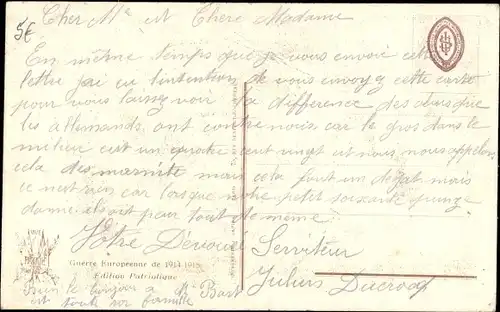 5€
Cher Mr et Chere Madame
En même temps que je vous envoie cette
lettre j'ai eu l'intention de vous envoyez cette carte
pour vous laissez voir la difference des obus que
les allemands ont contre nous car le gros dans le
milieu est un quatre cent vingt et nous nous appelon
cela des marmite mais cela font un dégat mais
ce n'est rien car lorsque notre petit soixante quinze
donne ils ont peur tout de même
Votre Dévoué Serviteur
Guerre Européenne de 1914-1915
Edition Patriotique
Julien
Bien le bonjour a Mr Bart
et toute sa famille